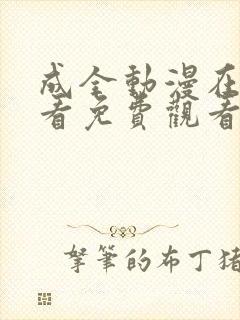 成全動漫在
看免費觀看
拏筆的布丁猪